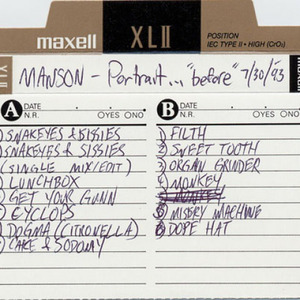 maxell XLII POSITION
IEC TYPE II • HIGH (CrO₂)
XLII
MANSON - Portrait..."before" 7/30/93
A DATE
N.R. OYES ONO
) SNAKEYES & SISSIES
) SNAKEYES & SISSIES
) (SINGLE MIX/EDIT)
) LUNCHBOX
) GET YOUR GUNN
) CYCLOPS
) DOGMA (CITRONELLA)
) CAKE & SODOMY
B DATE
N.R. OYES ONO
1) FILTH
2) SWEET TOOTH
3) ORGAN GRINDER
4) MONKEY
5) MISERY MACHINE
6) DOPE HAT